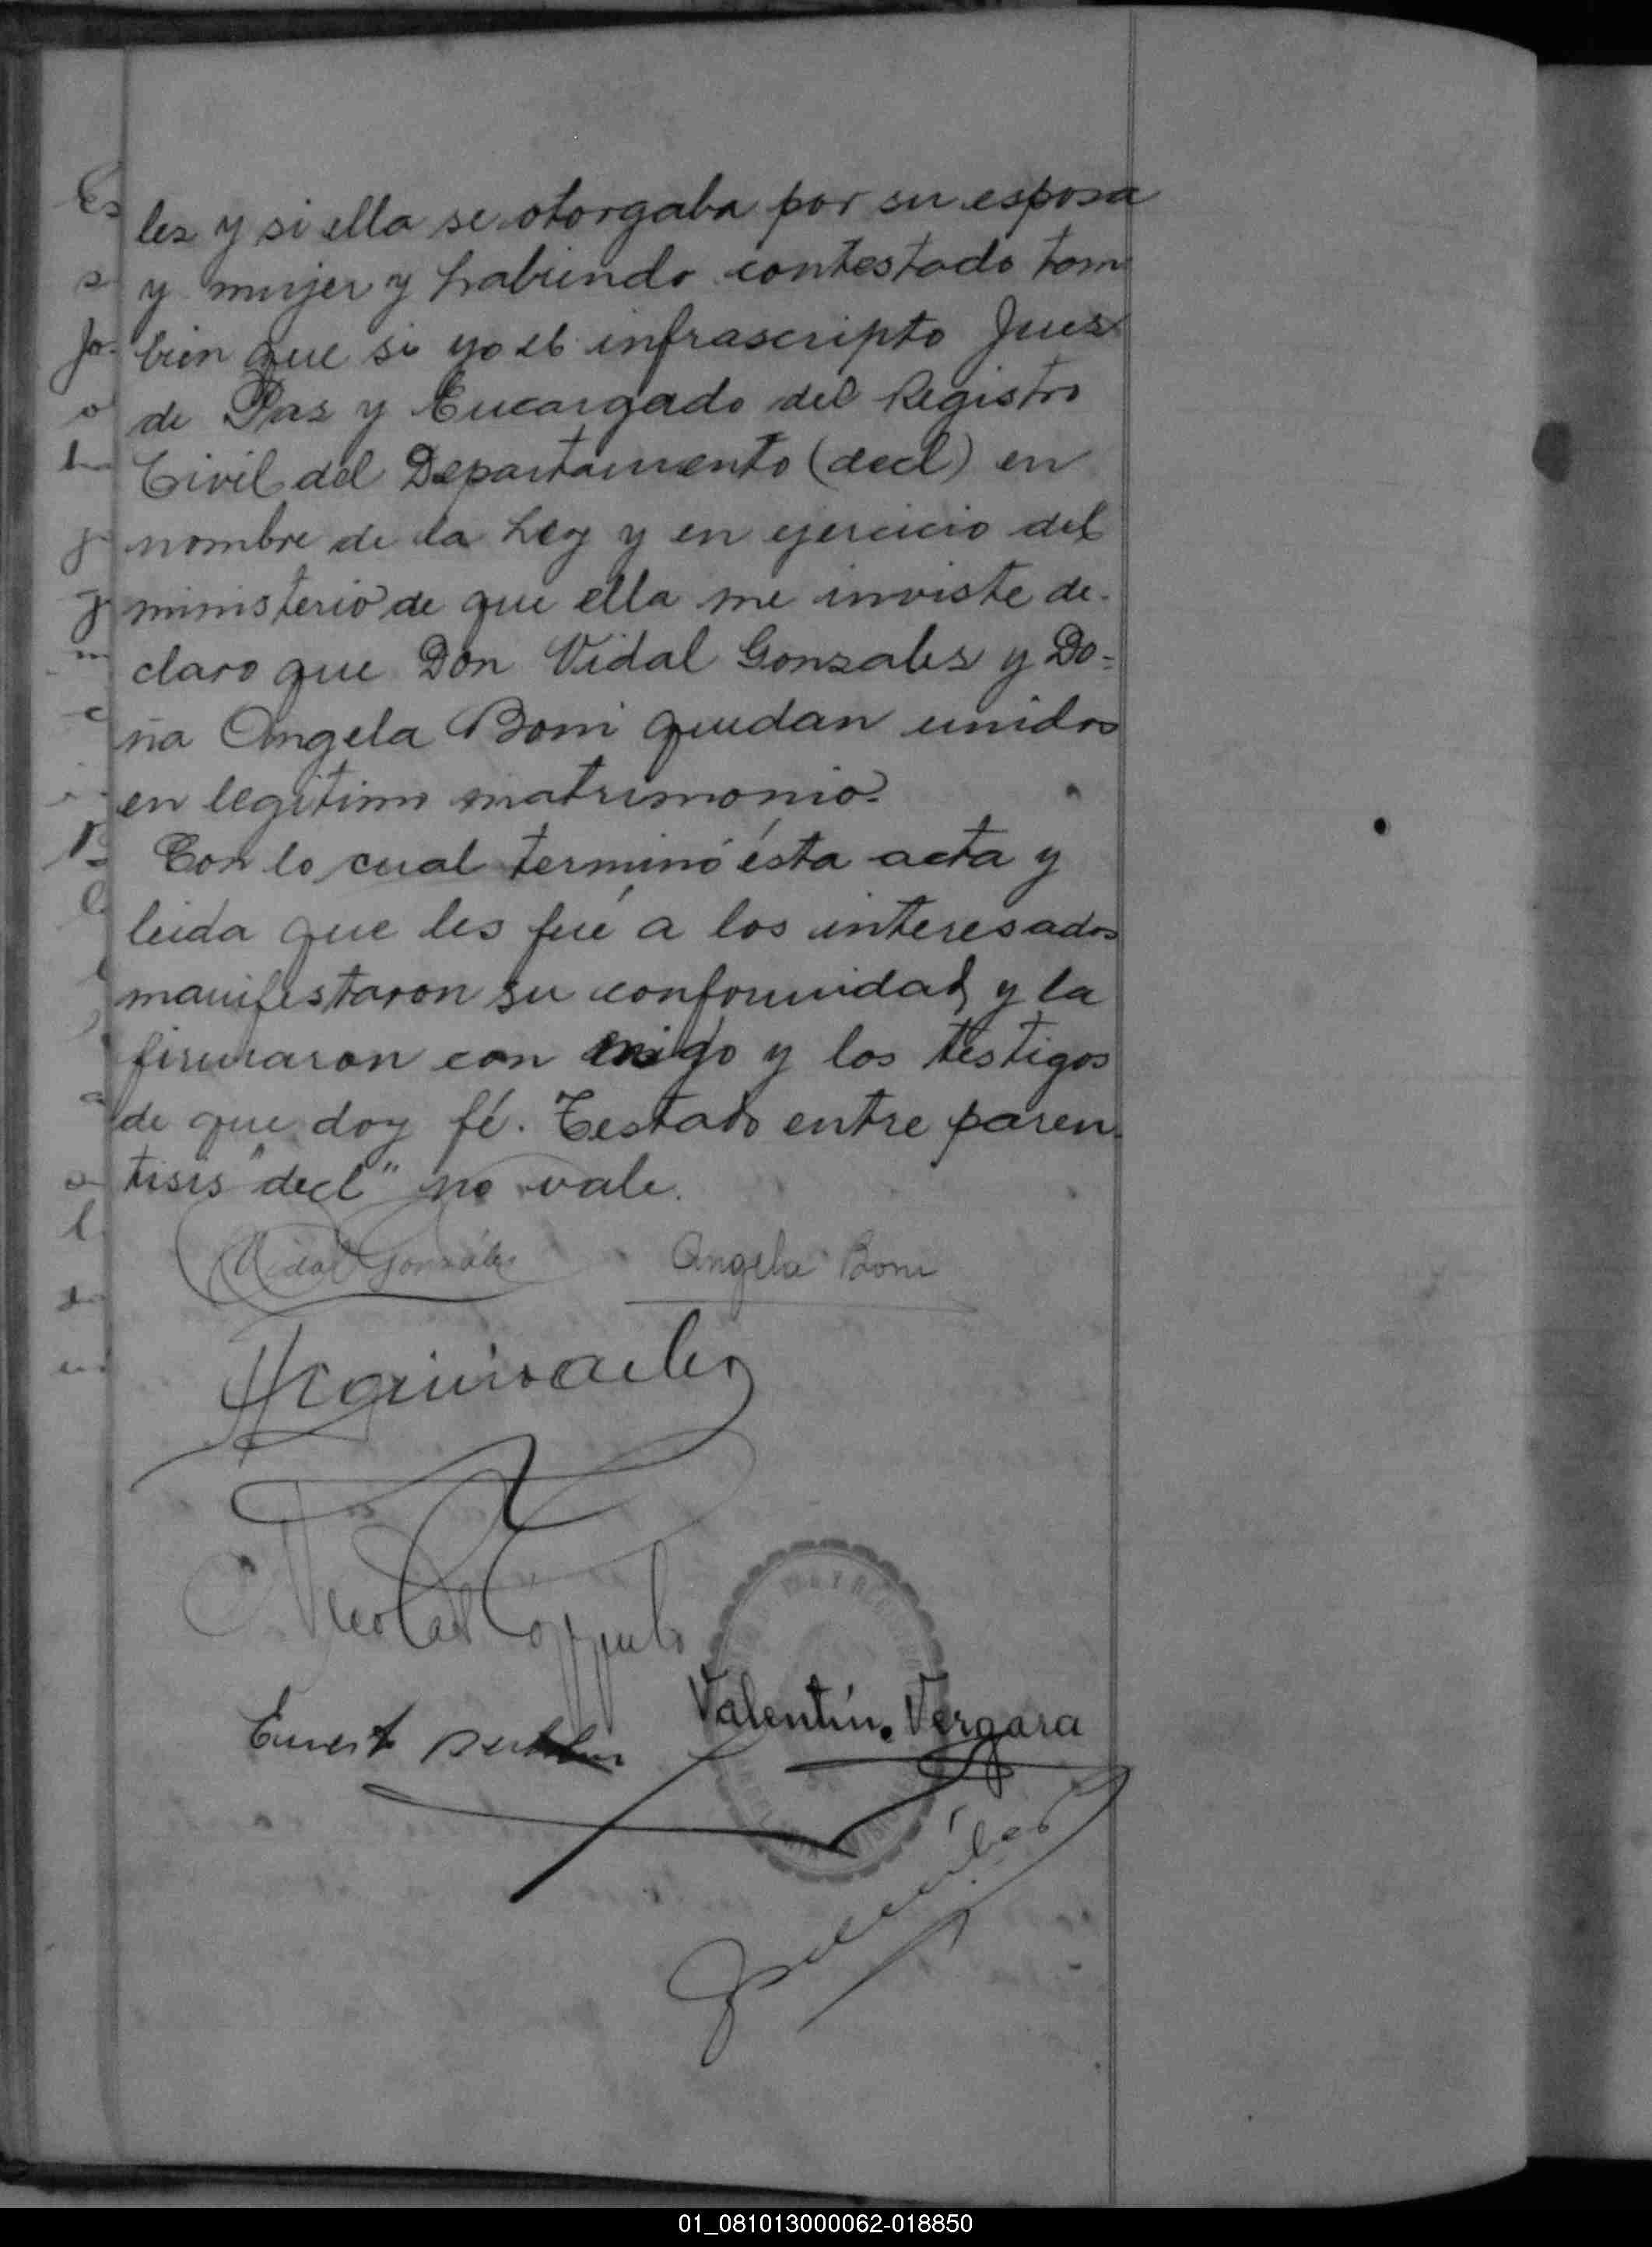 les y si ella se otorgaba por su esposa
y mujer y habiendo contestado tam
bien que si yo el infrascripto Juez
de Paz y Encargado del Registro
Civil del Departamento (decl) en
nombre de la Ley y en ejercicio del
ministerio de que ella me inviste de-
claro que Don Vidal Gonzales y Do=
ña Angela Boni quedan unidos
en legitimo matrimonio.
Con lo cual terminó ésta acta y
leida que les fué a los interesados
manifestaron su conformidad y la
firmaron con migo y los testigos
de que doy fé. Testado entre paren-
tisis "decl" no vale.
Vidal González Angela Boni
Nicolas
Valentín Vergara
Ernest
01_081013000062-018850